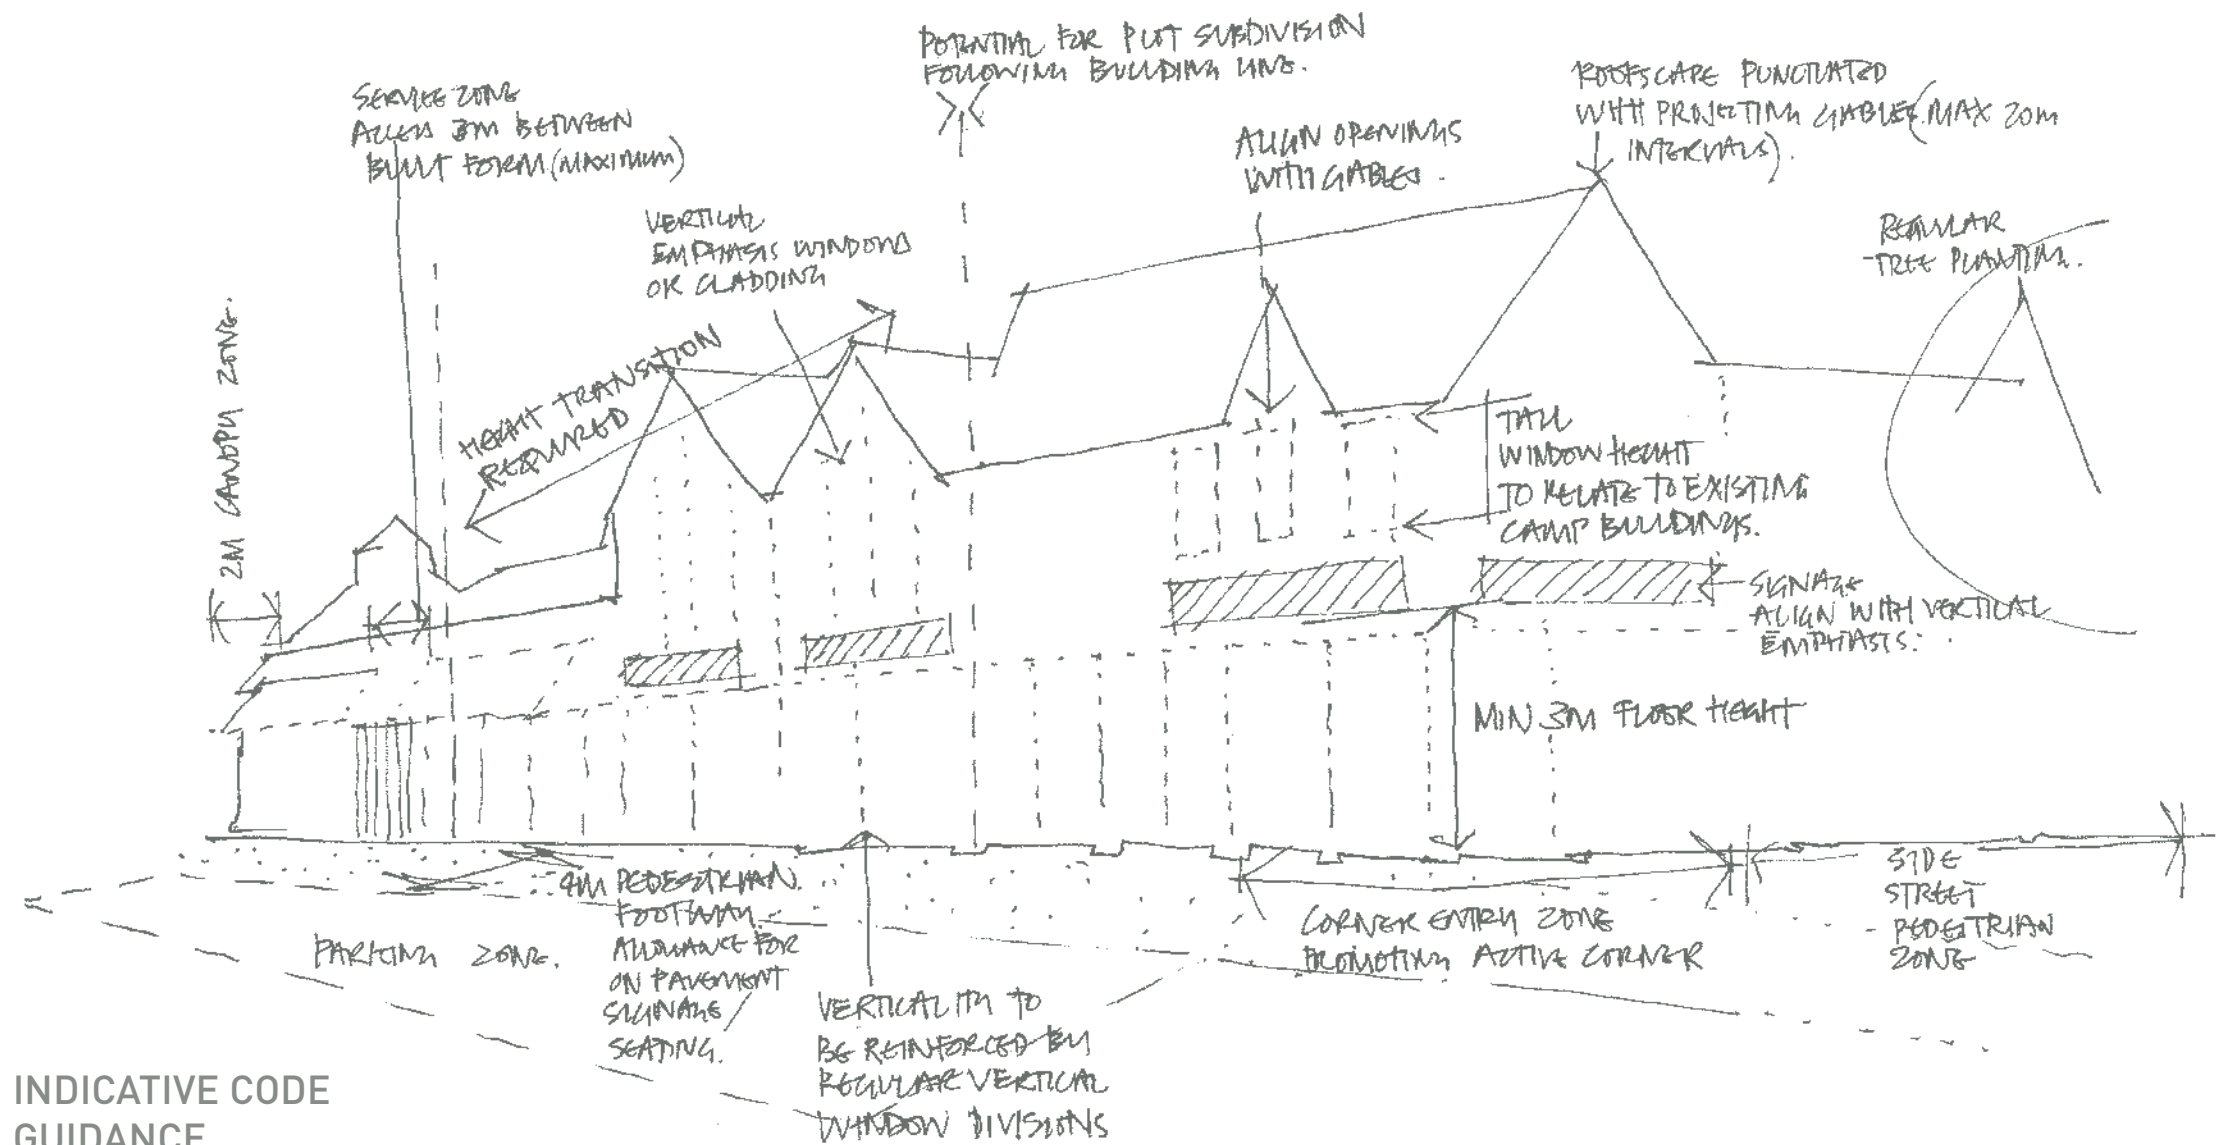 POTENTIAL FOR PLOT SUBDIVISION
FOLLOWING BUILDING LINE.
SERVICE ZONE
ACCESS 3M BETWEEN
BUILT FORM (MAXIMUM)
ROOFSCAPE PUNCTUATED
WITH PROJECTING GABLES (MAX 20m
INTERVALS).
ALIGN OPENINGS
WITH GABLES.
VERTICAL
EMPHASIS WINDOWS
OR CLADDING
REGULAR
TREE PLANTING.
2M CANOPY ZONE.
HEIGHT TRANSITION
REQUIRED
TALL
WINDOW HEIGHT
TO RELATE TO EXISTING
CAMP BUILDINGS.
SIGNAGE
ALIGN WITH VERTICAL
EMPHASIS.
MIN 3M FLOOR HEIGHT
4M PEDESTRIAN
FOOTWAY.
ALLOWANCE FOR
ON PAVEMENT
SIGNAGE
SEATING.
PARKING ZONE.
CORNER ENTRY ZONE
PROMOTING ACTIVE CORNER
SIDE
STREET
PEDESTRIAN
ZONE
VERTICALITY TO
BE REINFORCED BY
REGULAR VERTICAL
WINDOW DIVISIONS
INDICATIVE CODE
GUIDANCE